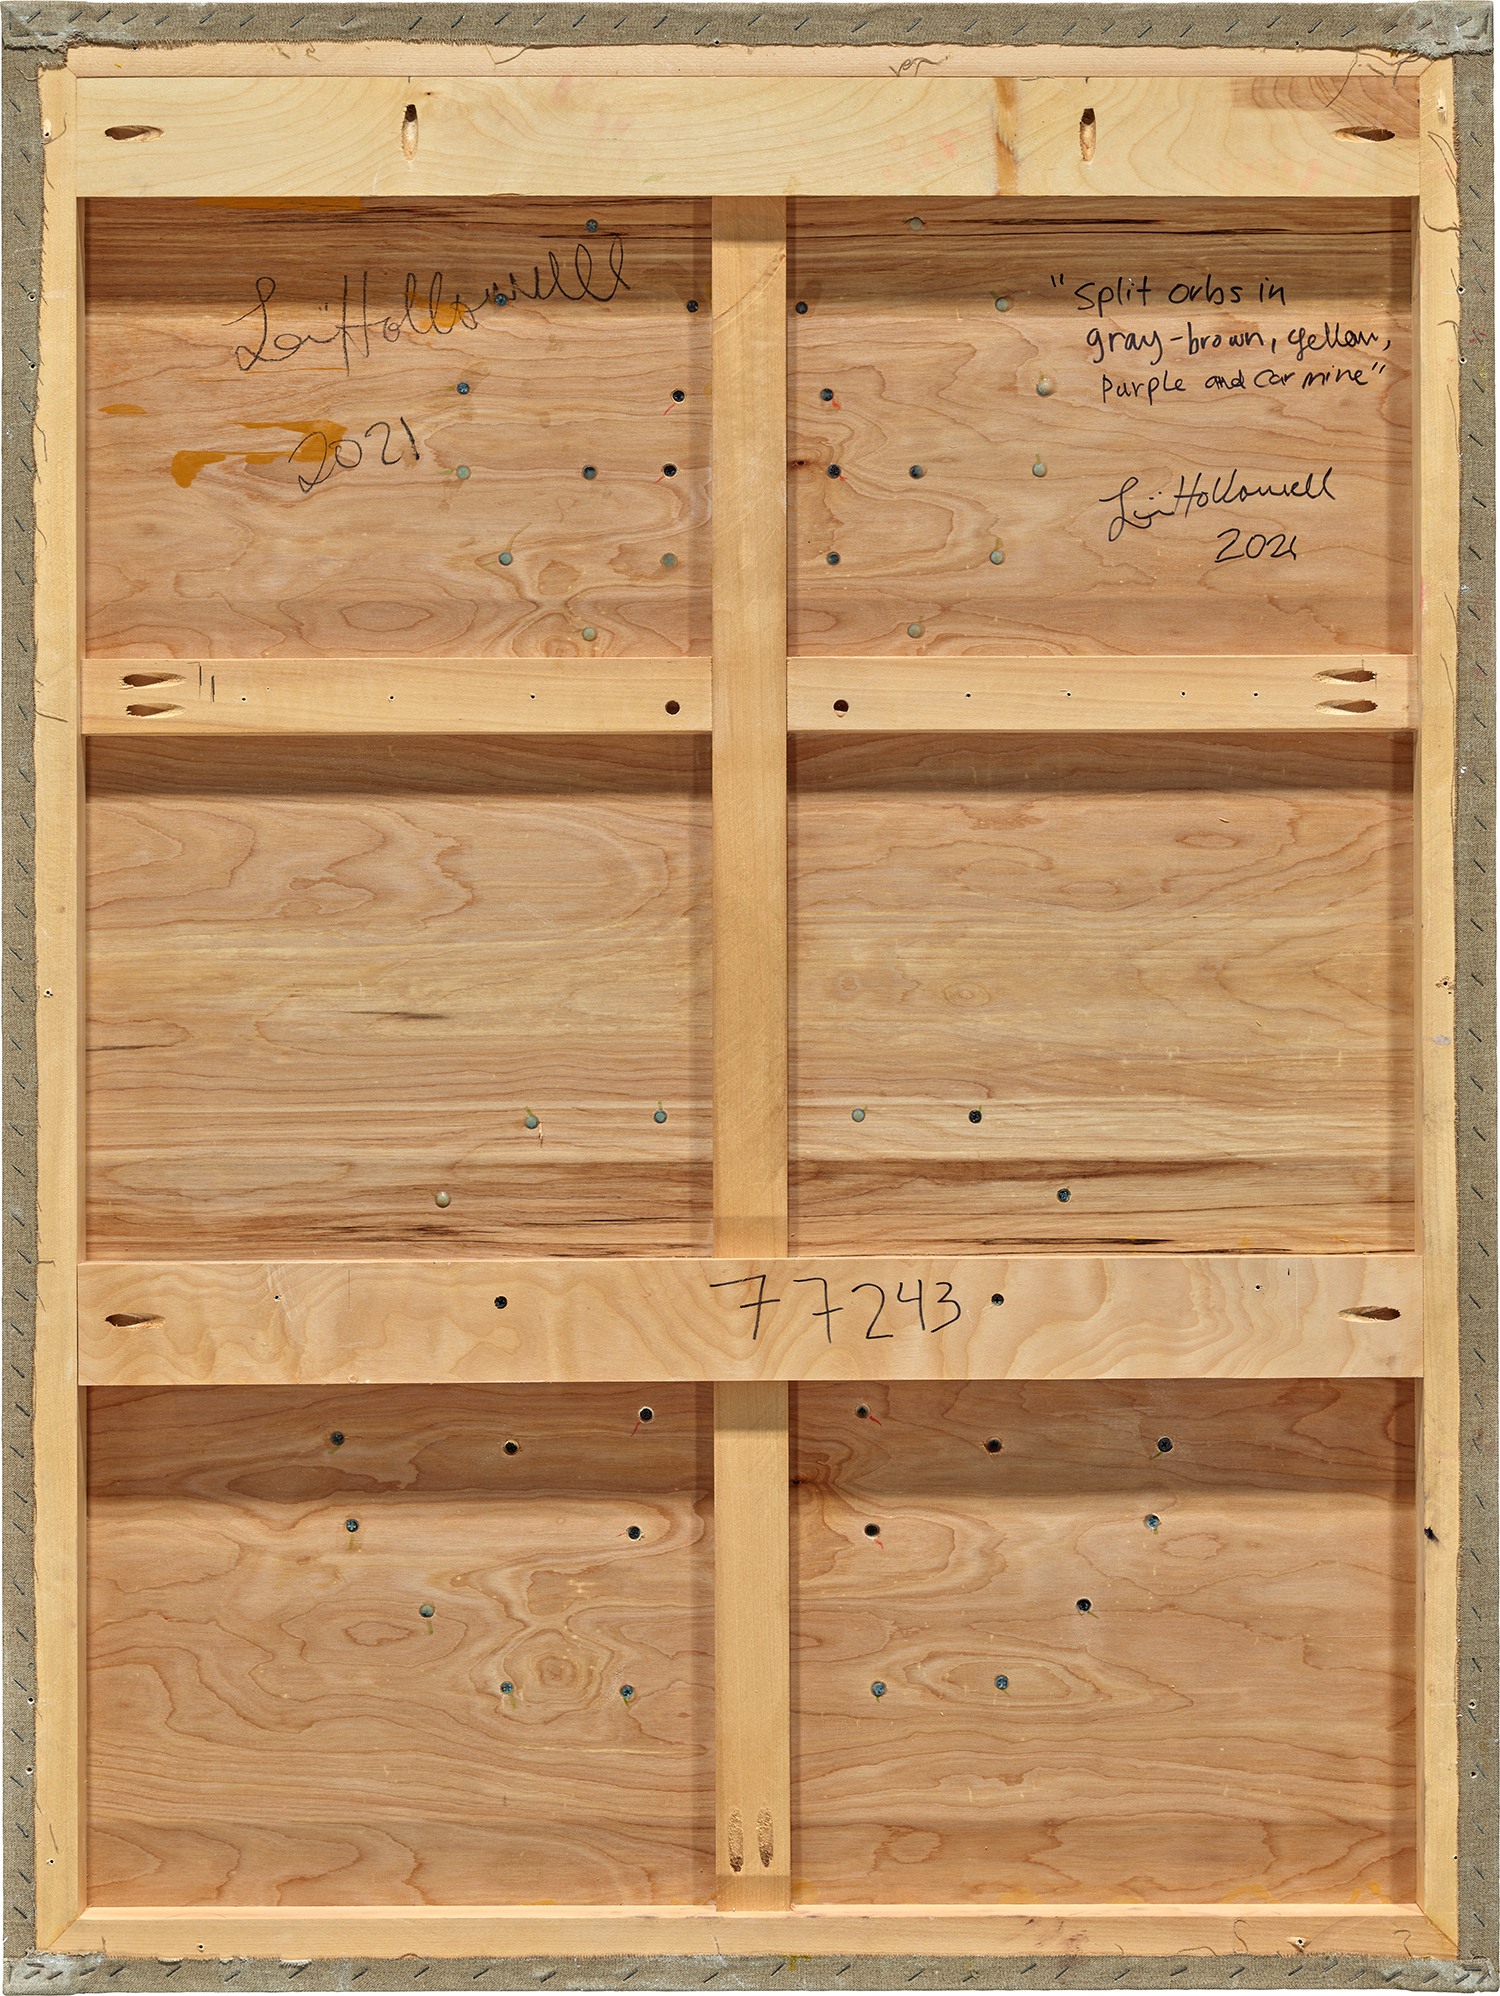 Loie Hollowell
2021
"Split orbs in
gray-brown, yellow,
purple and carmine"
Loie Hollowell
2021
77243